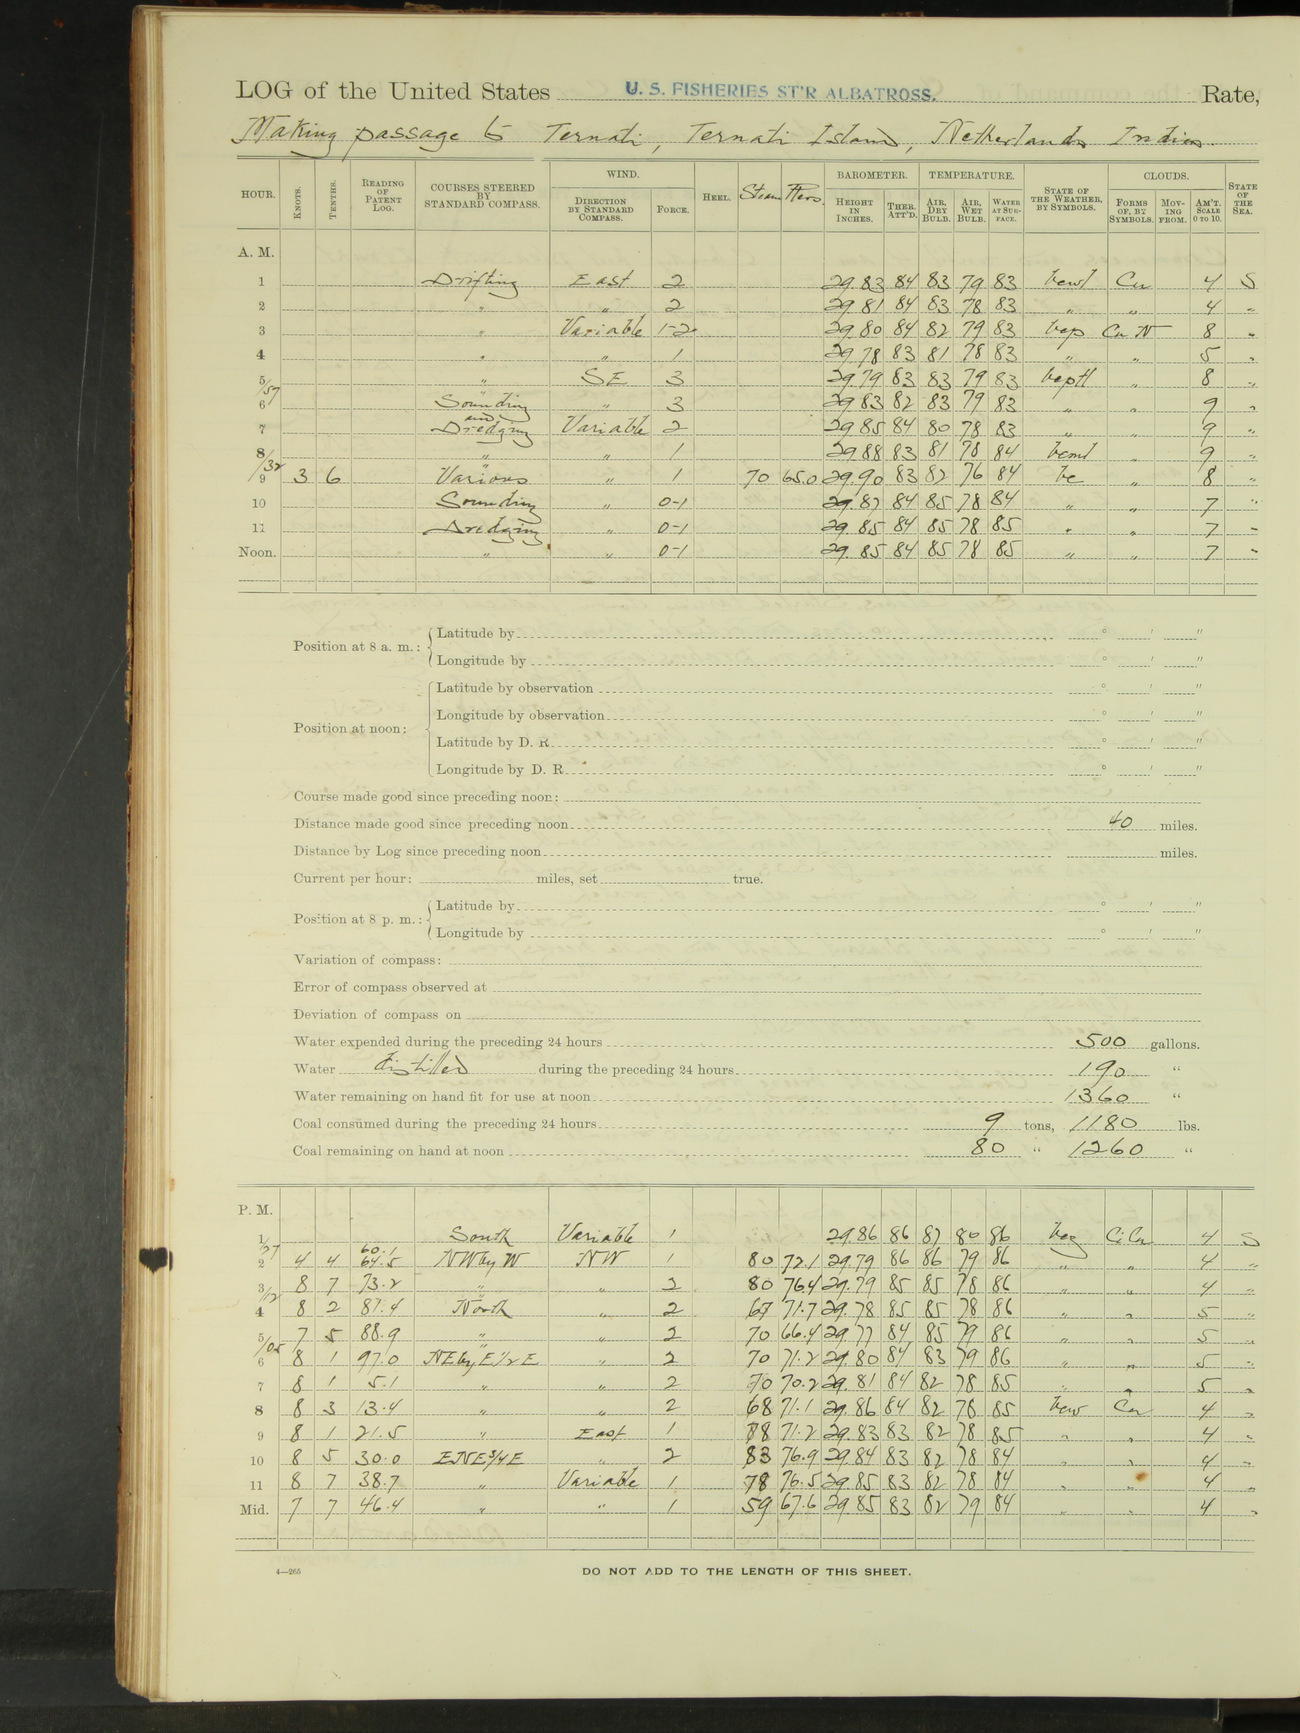 LOG of the United States U. S. FISHERIES ST'R ALBATROSS. Rate,
Making passage to Ternati, Ternati Island, Netherlands Indies.
HOUR. KNOTS. TENTHS. READING OF PATENT LOG. COURSES STEERED BY STANDARD COMPASS. WIND. DIRECTION BY STANDARD COMPASS. FORCE. HEEL. Steam Revs. BAROMETER. HEIGHT IN INCHES. THER. ATT'D. TEMPERATURE. AIR, DRY BULB. AIR, WET BULB. WATER AT SURFACE. STATE OF THE WEATHER, BY SYMBOLS. CLOUDS. FORMS OF, BY SYMBOLS. MOVING FROM. AM'T. SCALE 0 TO 10. STATE OF THE SEA.
A. M.
1 Drifting East 2 29.83 84 83 79 83 Cu 4 S
2 " " 2 29.81 84 83 78 83 " " 4 "
3 " Variable 1-2 29.80 84 82 79 83 bcp Cu N 8 "
4 " " 1 29.78 83 81 78 83 " " 5 "
5/57 " SE 3 29.79 83 83 79 83 " 8 "
6 Sounding " 3 29.83 82 83 79 83 " " 9 "
and
7 Dredging Variable 2 29.85 84 80 78 83 " " 9 "
8/32 " " 1 29.88 83 81 78 84 " 9 "
9 3 6 Various " 1 70 65.0 29.90 83 82 76 84 bc " 8 "
10 Sounding " 0-1 29.87 84 85 78 84 " " 7 "
11 Dredging " 0-1 29.85 84 85 78 85 " " 7 "
Noon. " " 0-1 29.85 84 85 78 85 " " 7 "
Position at 8 a. m.: Latitude by ° ′ ″
Longitude by ° ′ ″
Position at noon: Latitude by observation ° ′ ″
Longitude by observation ° ′ ″
Latitude by D. R. ° ′ ″
Longitude by D. R. ° ′ ″
Course made good since preceding noon:
Distance made good since preceding noon 40 miles.
Distance by Log since preceding noon miles.
Current per hour: miles, set true.
Position at 8 p. m.: Latitude by ° ′ ″
Longitude by ° ′ ″
Variation of compass:
Error of compass observed at
Deviation of compass on
Water expended during the preceding 24 hours 500 gallons.
Water distilled during the preceding 24 hours 190 "
Water remaining on hand fit for use at noon 1360 "
Coal consumed during the preceding 24 hours 9 tons, 1180 lbs.
Coal remaining on hand at noon 80 " 1260 "
P. M.
1/27 South Variable 1 29.86 86 87 80 86 Ci Cu 4 S
60.1
2 4 4 64.5 NW by W NW 1 80 72.1 29.79 86 86 79 86 " " 4 "
3/12 8 7 73.2 " " 2 80 76.4 29.79 85 85 78 86 " " 4 "
4 8 2 81.4 North " 2 67 71.7 29.78 85 85 78 86 " " 5 "
5/05 7 5 88.9 " " 2 70 66.4 29.77 84 85 79 86 " " 5 "
6 8 1 97.0 NE by E 1/2 E " 2 70 71.2 29.80 84 83 79 86 " " 5 "
7 8 1 5.1 " " 2 70 70.2 29.81 84 82 78 85 " " 5 "
8 8 3 13.4 " " 2 68 71.1 29.86 84 82 78 85 Cu 4 "
9 8 1 21.5 " East 1 78 71.2 29.83 83 82 78 85 " " 4 "
10 8 5 30.0 ENE 3/4 E " 2 83 76.9 29.84 83 82 78 84 " " 4 "
11 8 7 38.7 " Variable 1 78 76.5 29.85 83 82 78 84 " " 4 "
Mid. 7 7 46.4 " " 1 59 67.6 29.85 83 82 79 84 " " 4 "
4—265 DO NOT ADD TO THE LENGTH OF THIS SHEET.